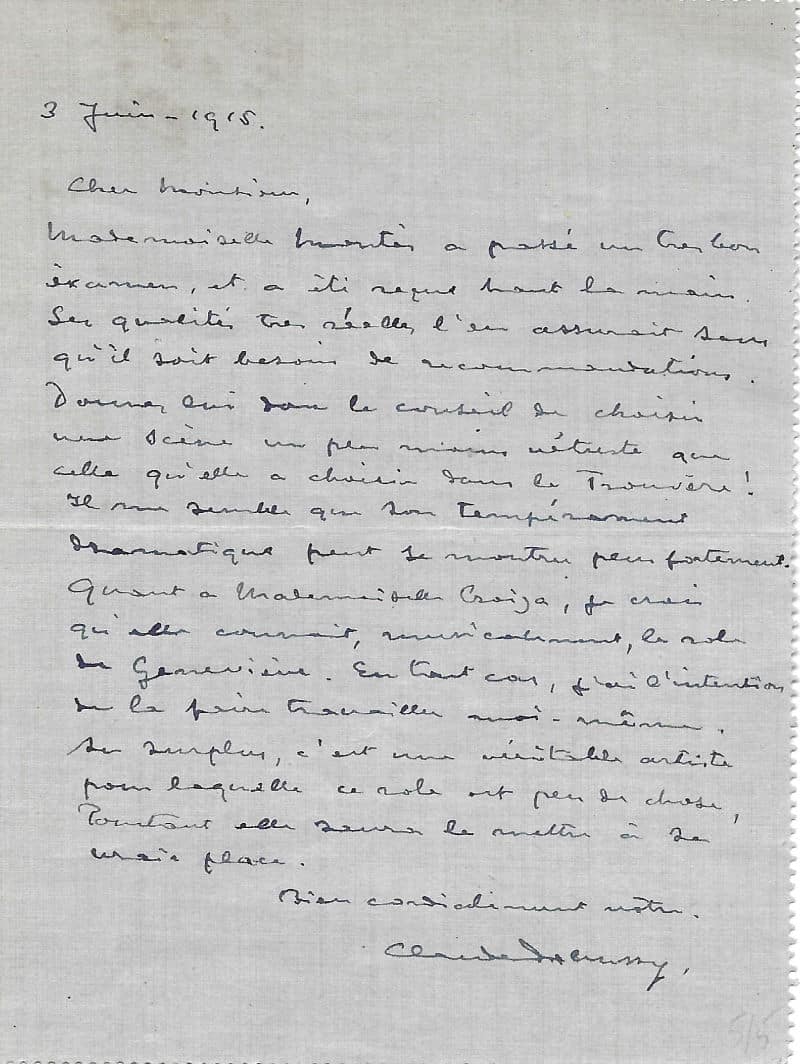 3 Juin - 1915.
Cher Monsieur,
Mademoiselle Montès a passé un très bon
éxamen, et a été reçue haut la main.
Ses qualités très réelles l'en assurait sans
qu'il soit besoin de recommandations.
Donnez lui donc le conseil de choisir
une scène un peu moins vétuste que
celle qu'elle a choisie dans le Trouvère !
Il me semble que son tempérament
dramatique peut se montrer plus fortement.
Quant a Mademoiselle Croiza, je crois
qu'elle connait, musicalement, le role
de Geneviève. En tout cas, j'ai l'intention
de la faire travailler moi-même.
Au surplus, c'est une véritable artiste
pour laquelle ce role est peu de chose,
Pourtant elle saura le mettre à sa
vraie place.
Bien cordialement vôtre.
Claude Debussy,
5/5